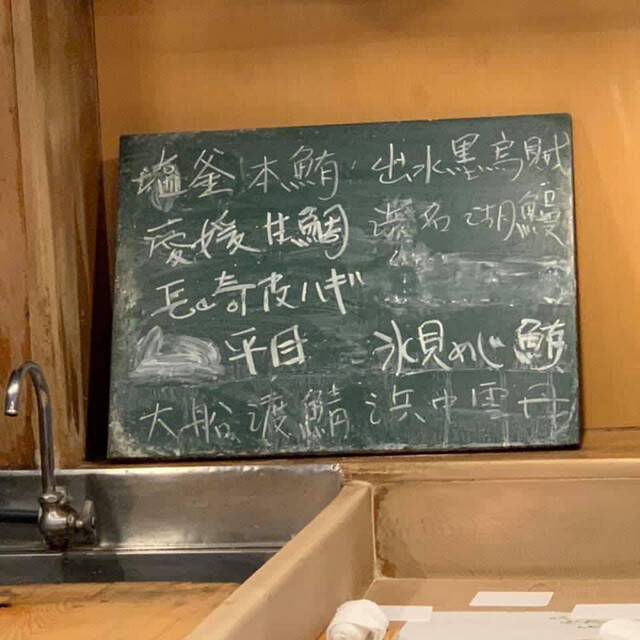 塩釜本鮪
愛媛甘鯛
長崎皮ハギ
平目
大船渡鯖
出水墨烏賊
浜名湖鰻
氷見めじ鮪
浜中雲丹